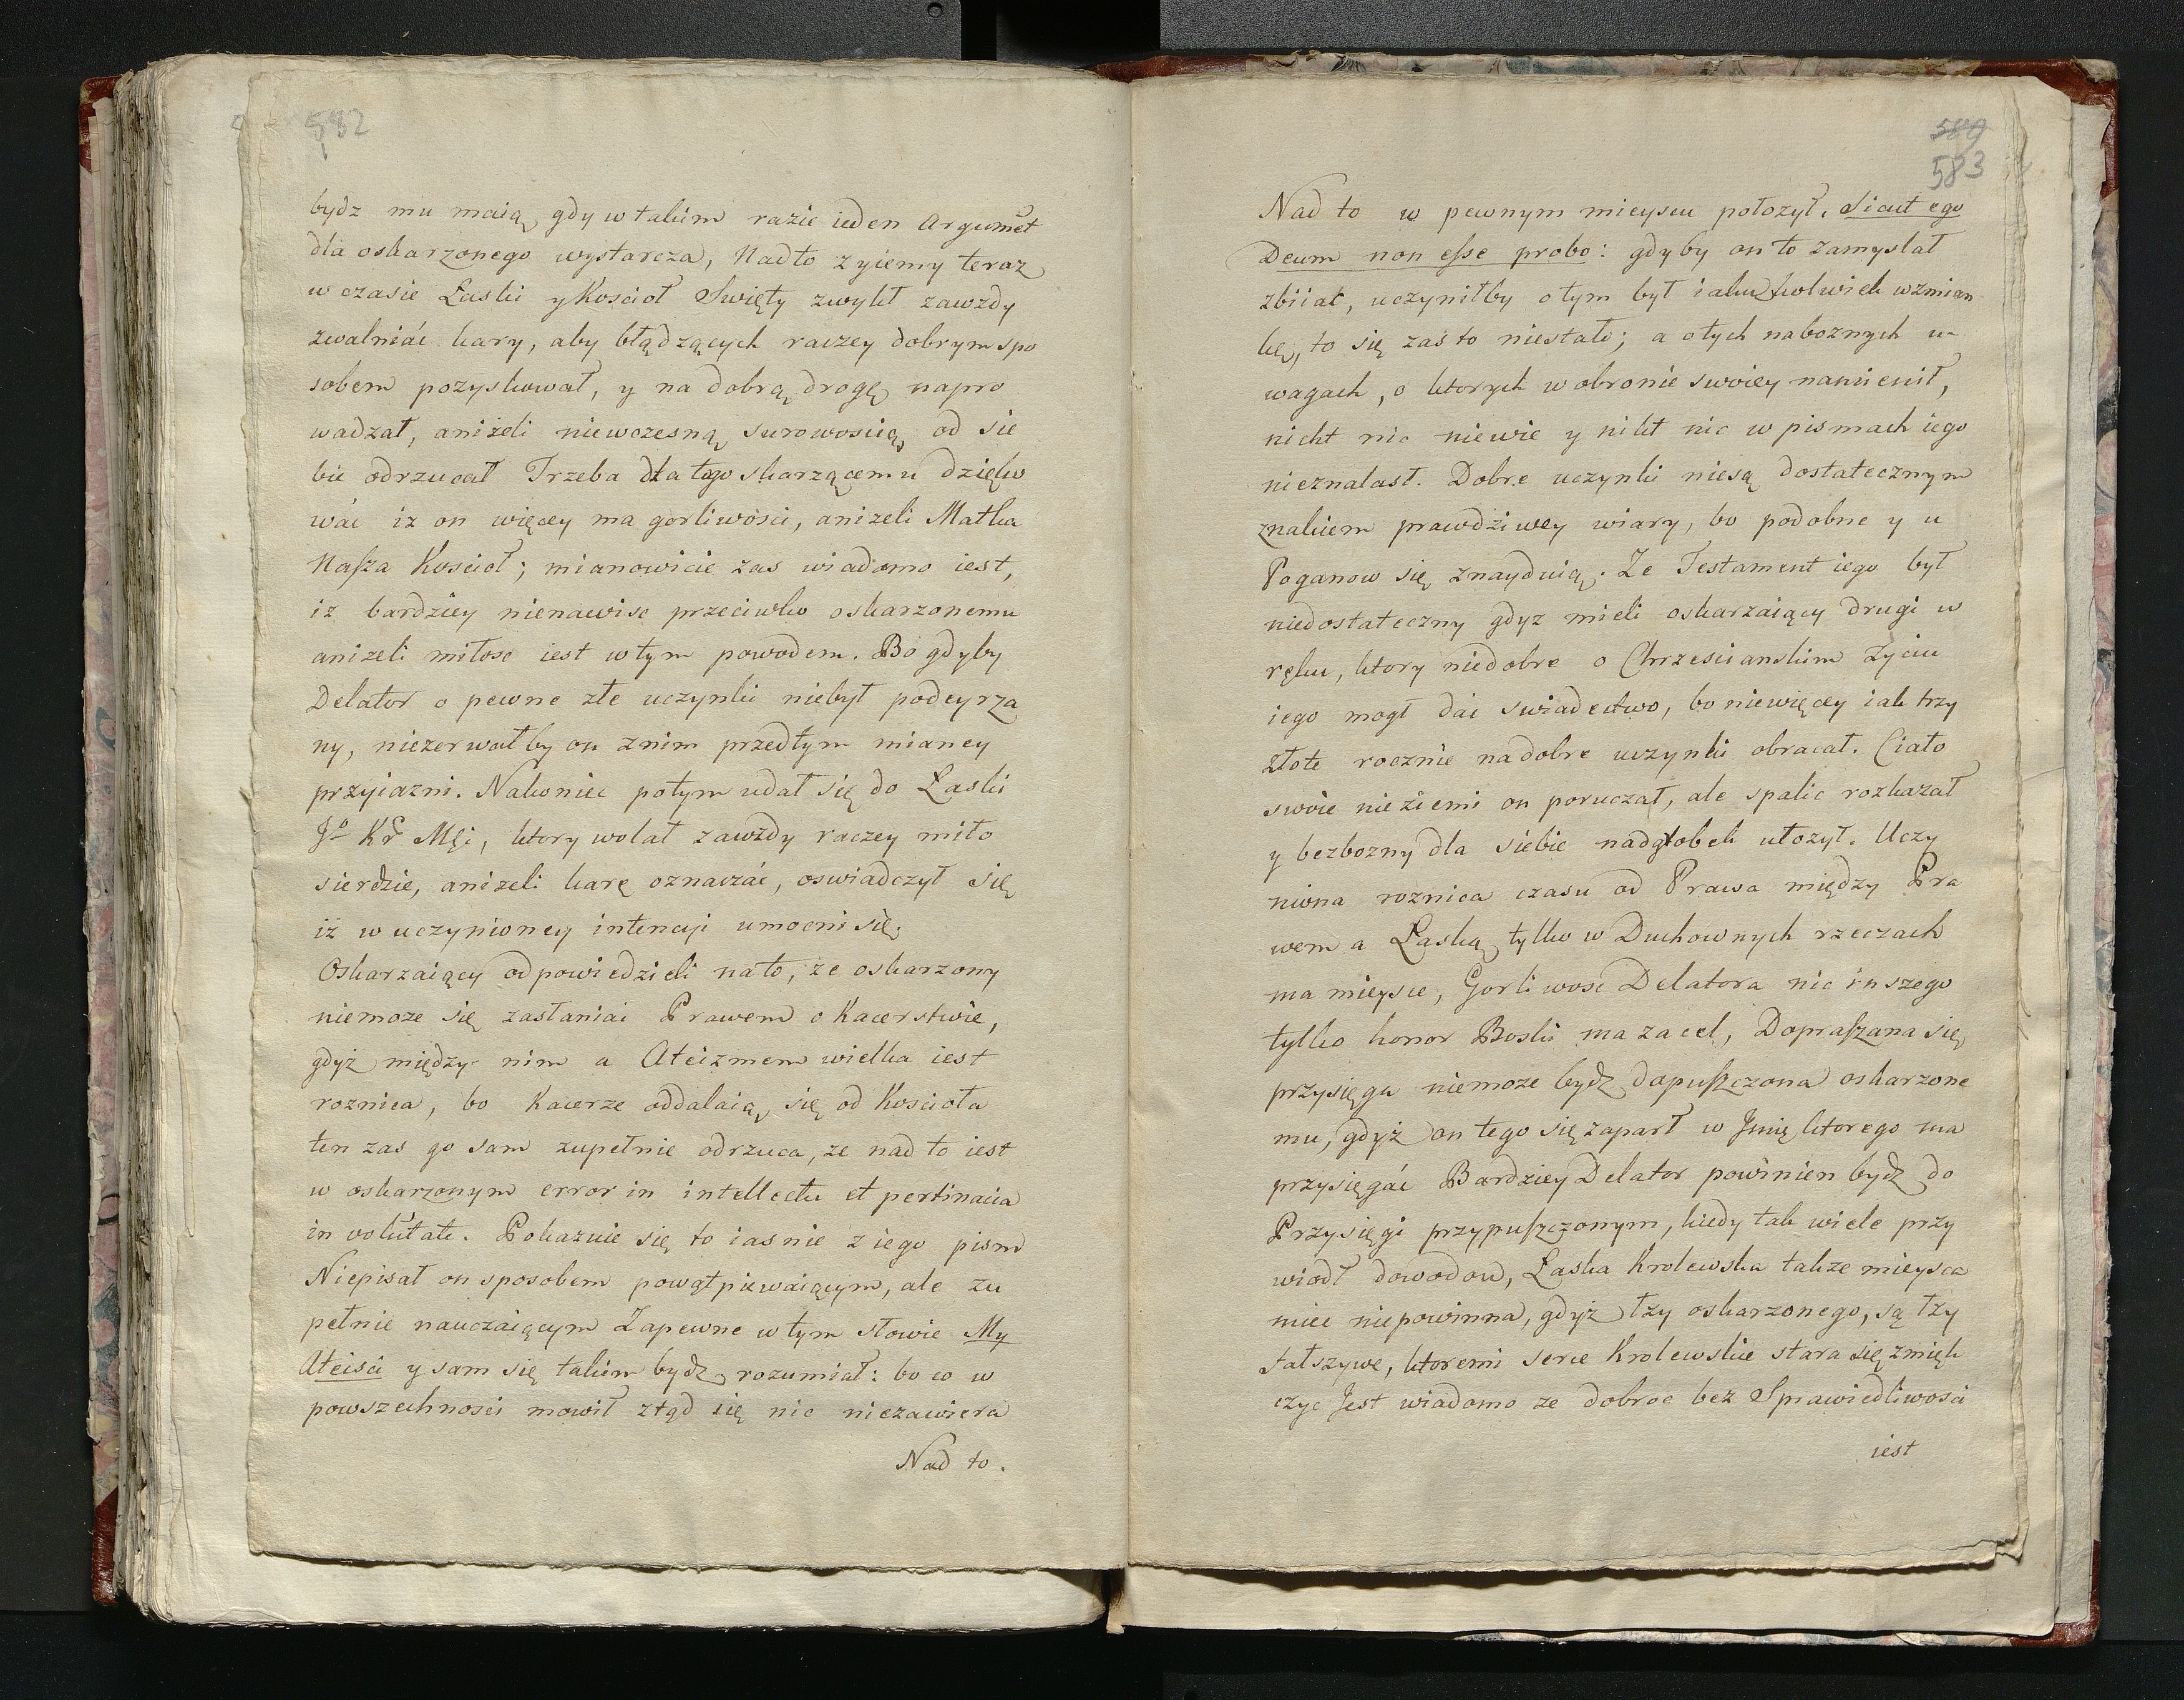 582
bydz mu maią, gdy w takim razie ieden Argumēt
dla oskarzonego wystarcza, Nadto zyiemy teraz
w czasie Łaski y Kościoł Swięty zwykł zawzdy
zwalniáć kary, aby błądzących raczey dobrym spo
sobem pozyskował, y na dobrą drogę napro
wadzał, aniżeli niewczesną surowoscią od sie
bie odrzucał Trzeba dla tego skarzącemu dzięko
wáć iz on więcey ma gorliwości, anizeli Matka
Nasza Kościoł; mianowicie zas wiadomo iest,
iz bardziey nienawisc przeciwko oskarzonemu
anizeli miłosc iest w tym powodem. Bo gdyby
Delator o pewne złe uczynki niebył podeyrza
ny, niezerwałby on z nim przedtym mianey
przyiazni. Nakoniec potym udał się do Łaski
Jo Kr Mci, ktory wolał zawżdy raczey miło
sierdzie, anizeli karę oznaczáć, oswiadczył się
iż w uczynioney intencyi umocni się.
Oskarzaiący odpowiedzieli na to, ze oskarzony
niemoze się zasłaniai Prawem o Kacerstwie,
gdyż między nim a Ateizmem wielka iest
roznica, bo Kacerze oddalaią się od Kościoła
ten zas go sam zupełnie odrzuca, ze nad to iest
w oskarzonym error in intellectu et pertinacia
in volūtate. Pokazuie się to iasnie z iego pism
Niepisał on sposobem powątpiewaiącym, ale zu
pełnie nauczaiącym Zapewne w tym słowie My
Ateisci y sam się takim bydz rozumiał: bo co w
powszechności mowił ztąd się nic niezawiera
Nad to.
589
583
Nad to w pewnym mieyscu położył, Sicut ego
Deum non esse probo: gdyby on to zamyslał
zbiiac, uczyniłby o tym był iakążkolwiek wzmian
kę, to się zas to niestało; a o tych naboznych u
wagach, o ktorych w obronie swoiey namienił,
nicht nic niewie y nikt nic w pismach iego
nieznalasł. Dobre uczynki niesą dostatecznym
znakiem prawdziwey wiary, bo podobne y u
Poganow się znayduią. Ze Testament iego był
niedostateczny gdyz mieli oskarzaiący drugi w
ręku, ktory niedobre o Chrzescianskim Życiu
iego mogł dai swiadectwo, bo niewięcey iak trzy
złote rocznie na dobre uczynki obracał. Ciało
swoie nieziemi on poruczał, ale spalic rozkazał
y bezbozny dla siebie nadgrobek ułozył. Uczy
niona roznica czasu od Prawa między Pra
wem a Łaską tylko w Duchownych rzeczach
ma mieysce, Gorliwosc Delatora nic inszego
tylko honor Boski ma za cel, Dopraszana się
przysięga niemoze bydz dopuszczona oskarzone
mu, gdyż on tego się zaparł w Jmię ktorego ma
przysięgáć Bardziey Delator powinien bydz do
Przysięgi przypuszczonym, kiedy tak wiele przy
wiodł dowodow, Łaska Krolewska takze mieysca
miec niepowinna, gdyż łzy oskarzonego, są łzy
fałszywe, ktoremi serce Krolewskie stara się zmięk
czyc Jest wiadomo ze dobroc bez Sprawiedliwosci
iest